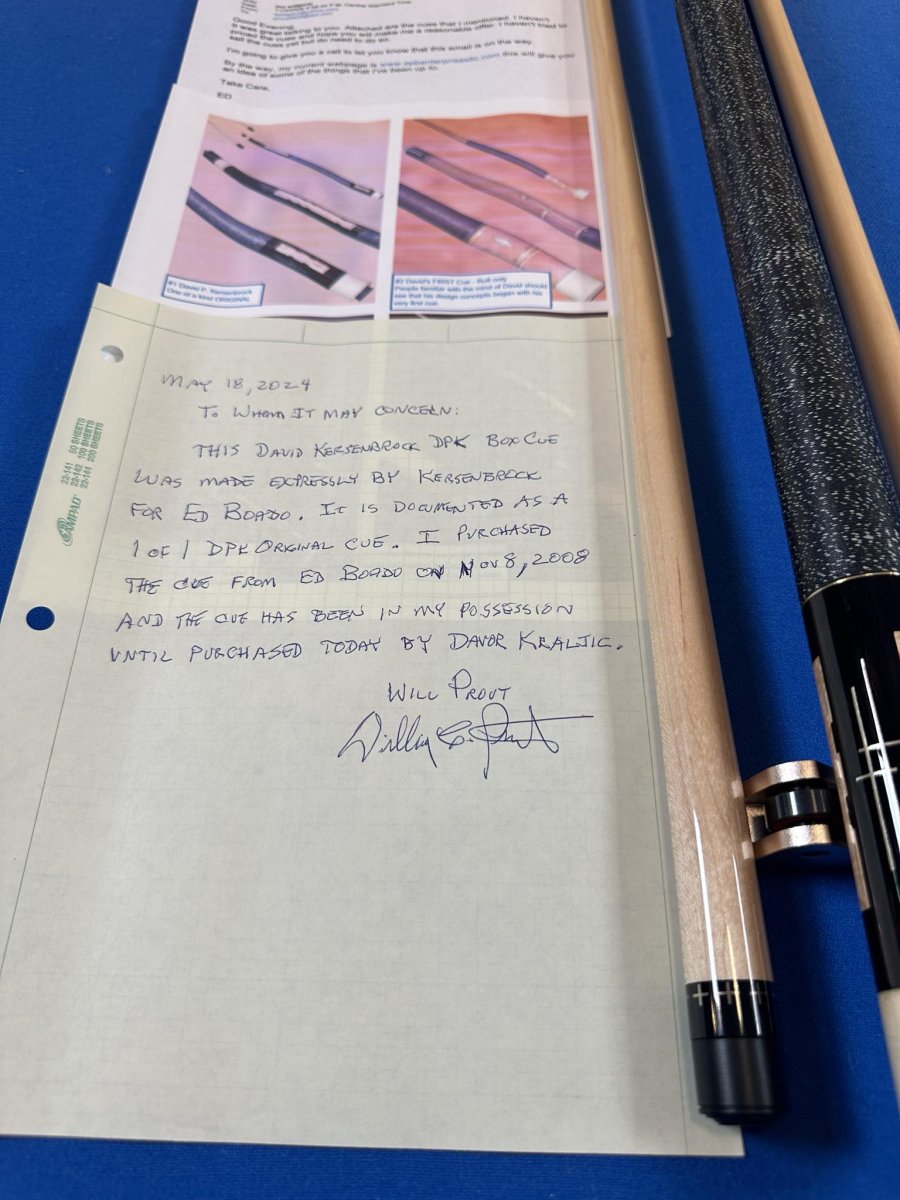 Good Evening,
It was great talking to you. Attached are the cues that I mentioned. I haven't
priced the cues and hope you will make me a reasonable offer. I haven't tried to
sell the cues yet but do need to do so.
I'm going to give you a call to let you know that this email is on the way.
By the way, my current webpage is this will give you
an idea of some of the things that I've been up to.
Take Care,
ED
#1 David P. Kersenbrock
One of a kind ORIGINAL
#2 David's FIRST Cue - Butt only
People familiar with the mind of David should
see that his design concepts began with his
very first cue.
MAY 18, 2024
TO WHOM IT MAY CONCERN:
THIS DAVID KERSENBROCK DPK BOX CUE
WAS MADE EXPRESSLY BY KERSENBROCK
FOR ED BOADO. IT IS DOCUMENTED AS A
1 OF 1 DPK ORIGINAL CUE. I PURCHASED
THE CUE FROM ED BOADO ON NOV 8, 2008
AND THE CUE HAS BEEN IN MY POSSESSION
UNTIL PURCHASED TODAY BY DAVOR KRALJIC.
WILL PROUT
22-141 50 SHEETS
22-142 100 SHEETS
22-144 200 SHEETS
AMPAD